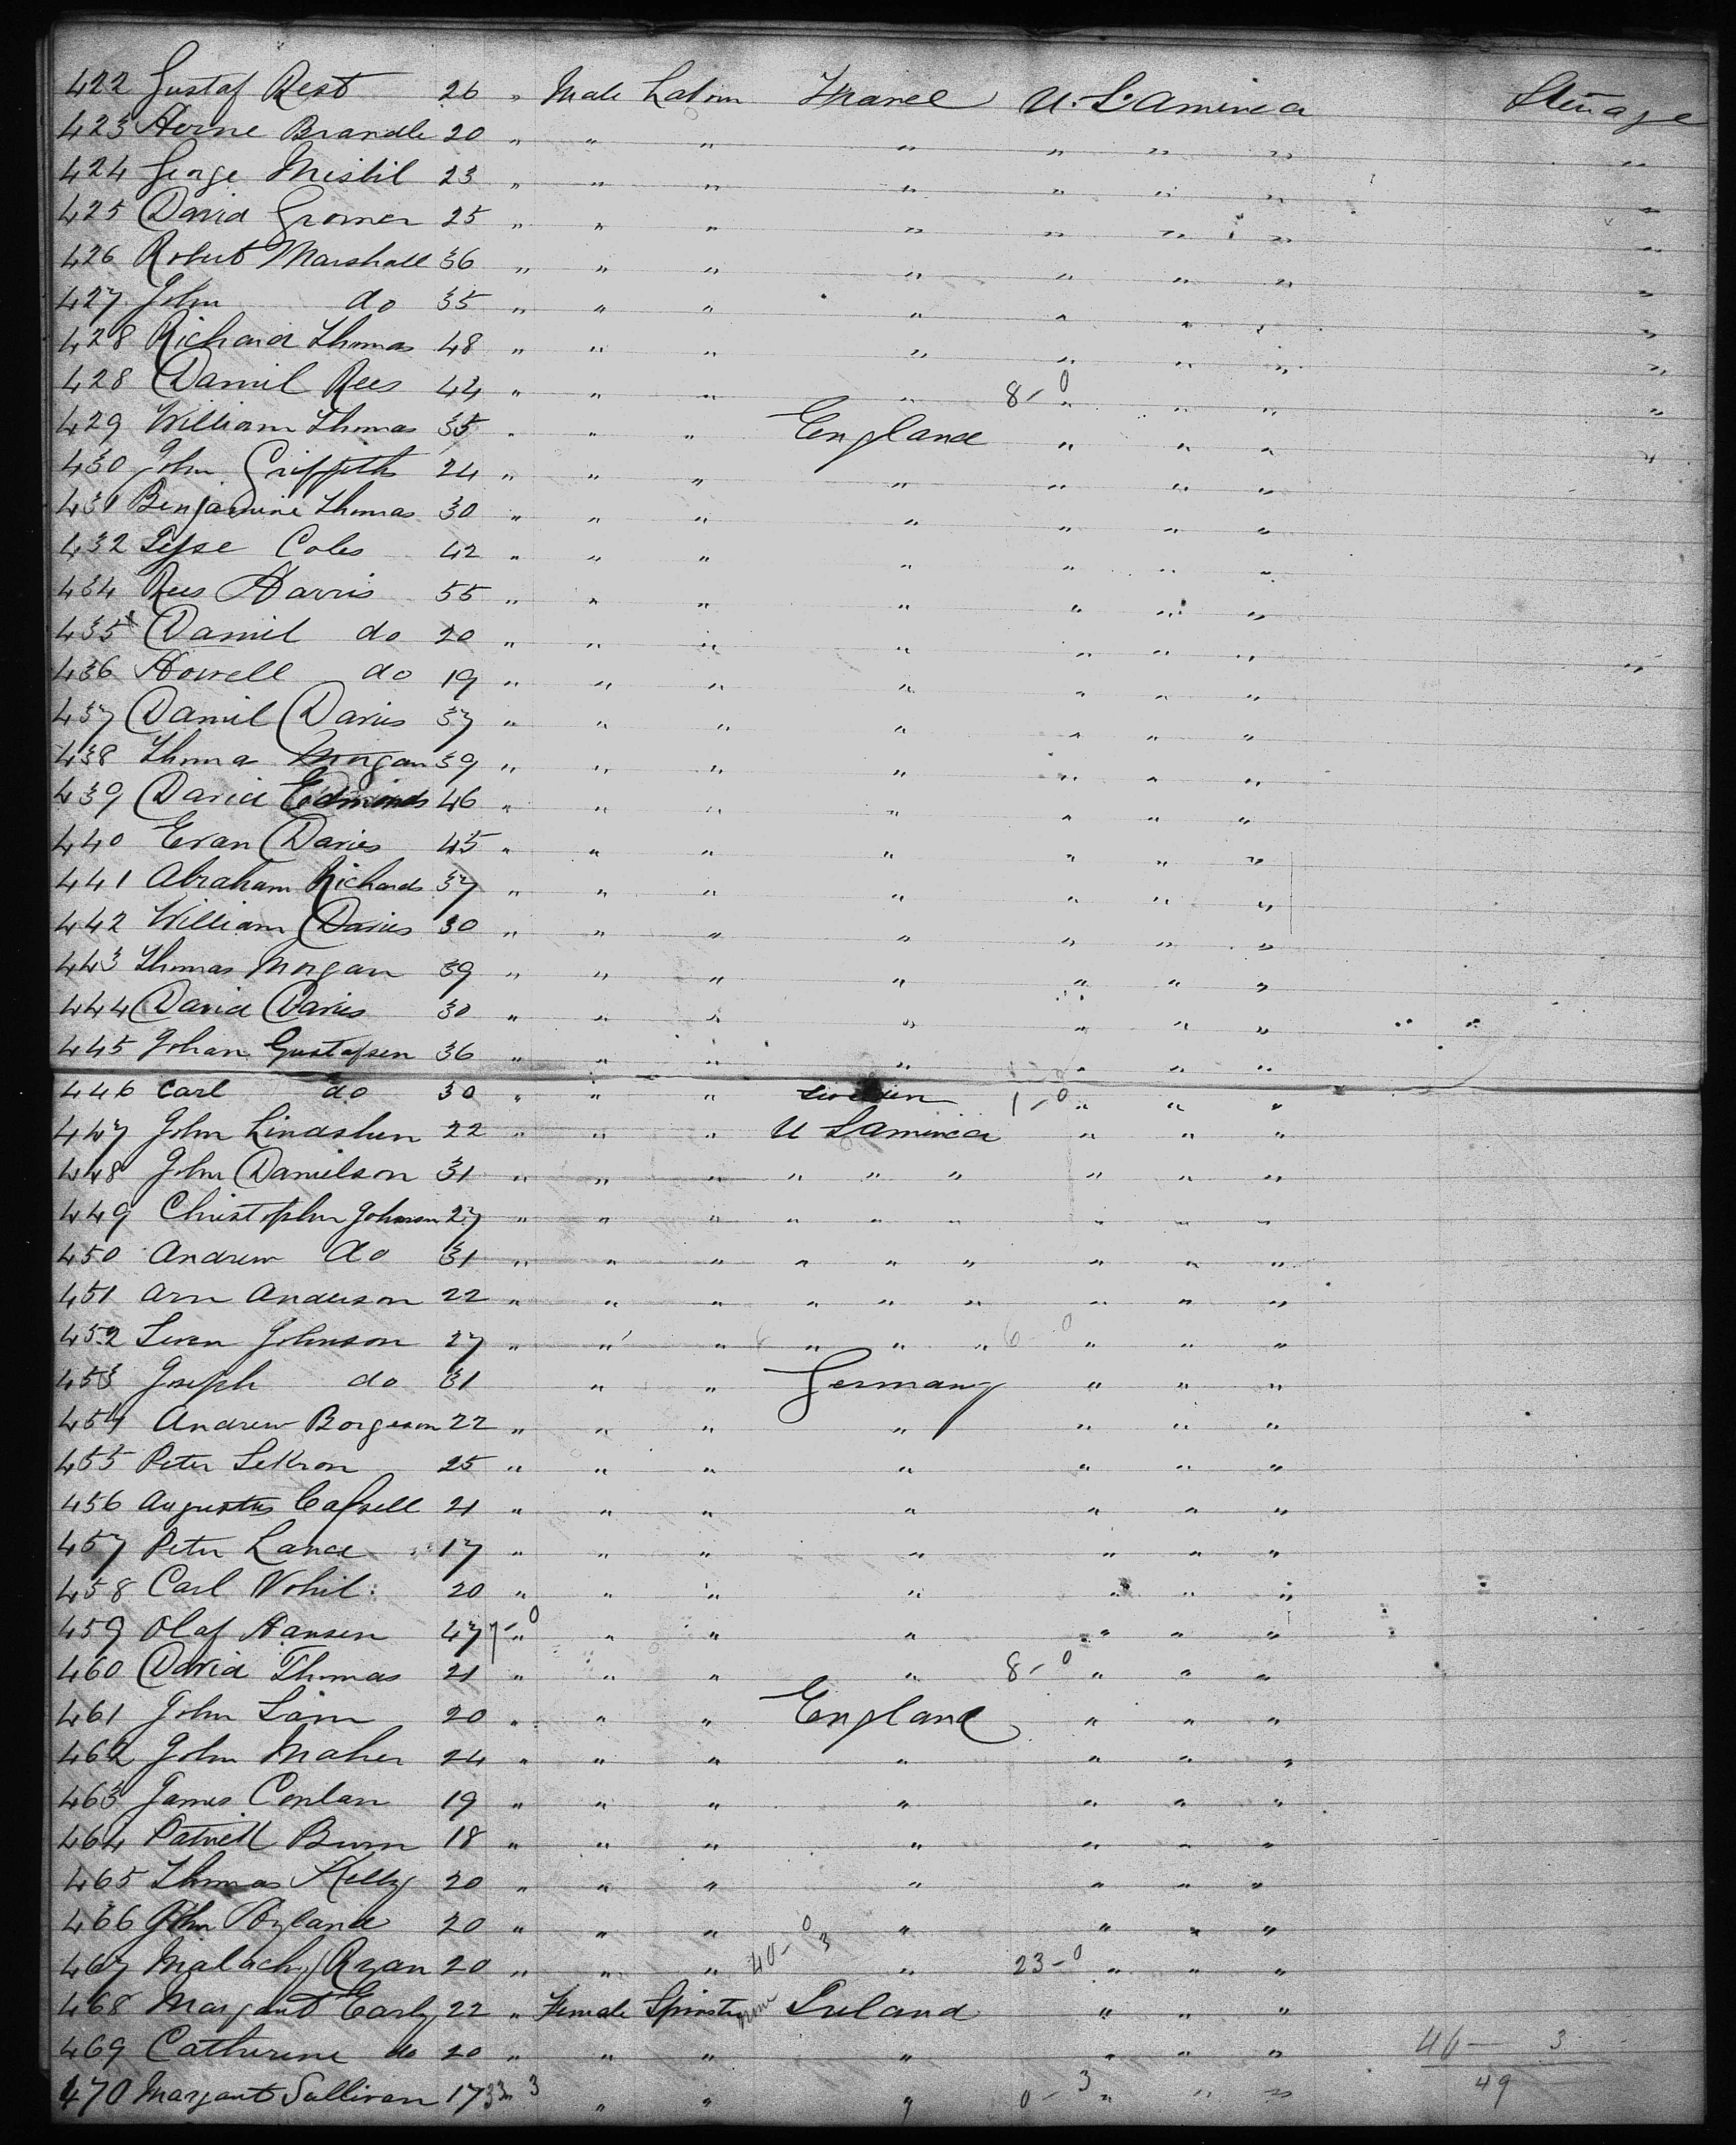 422 Gustaf Rest 26 " Male Labour France U. S. America Steerage
423 Herne Brandle 20 " " " " " " " "
424 George Mistil 23 " " " " " " " "
425 David Gromer 25 " " " " " " " "
426 Robert Marshall 36 " " " " " " " "
427 John do 35 " " " " " " " "
428 Richard Thomas 48 " " " " " " " "
428 Daniel Rees 44 " " " " 8-0 " " " "
429 William Thomas 35 " " " England " " " "
430 John Griffiths 24 " " " " " " "
431 Benjamine Thomas 30 " " " " " " "
432 Jesse Coles 42 " " " " " " "
434 Rees Harris 55 " " " " " " "
435 Daniel do 20 " " " " " " "
436 Howell do 19 " " " " " " " "
437 Daniel Davies 37 " " " " " " "
438 Thoma Morgan 39 " " " " " " "
439 David Edmonds 46 " " " " " " "
440 Evan Davies 45 " " " " " " "
441 Abraham Richards 37 " " " " " " "
442 William Davies 30 " " " " " " "
443 Thomas Morgan 39 " " " " " " "
444 David Davies 30 " " " " " " "
445 Johan Gustafsen 36 " " " " " " "
446 Carl do 30 " " " Sweden 1-0 " " "
447 John Lindshen 22 " " " U S America " " "
448 John Danielson 31 " " " " " " " " "
449 Christopher Johnson 27 " " " " " " " " "
450 Andrew do 31 " " " " " " " " "
451 Arn Anderson 22 " " " " " " " " "
452 Sven Johnson 27 " " " " " " 6-0 " " "
453 Joseph do 31 " " Germany " " "
454 Andrew Borgeson 22 " " " " " " "
455 Peter Sekron 25 " " " " " " "
456 Augustus Cassell 21 " " " " " " "
457 Peter Lance 17 " " " " " " "
458 Carl Vohil 20 " " " " " " "
459 Olaf Hansen 47 7-0 " " " " " " "
460 David Thomas 21 " " " " 8-0 " " "
461 John Lain 20 " " " England " " "
462 John Maher 24 " " " " " " "
463 James Conlan 19 " " " " " " "
464 Patrick Burn 18 " " " " " " "
465 Thomas Kelly 20 " " " " " " "
466 John Hyland 20 " " " " " " "
467 Malachy Ryan 20 " " " 40-0 3 " 23-0 " " "
468 Margaret Early 22 " Female Spinster Ireland " " "
469 Catherine do 20 " " " " " " " 46- 3
470 Margaret Sullivan 17 33 3 " " " 0-3 " " " 49